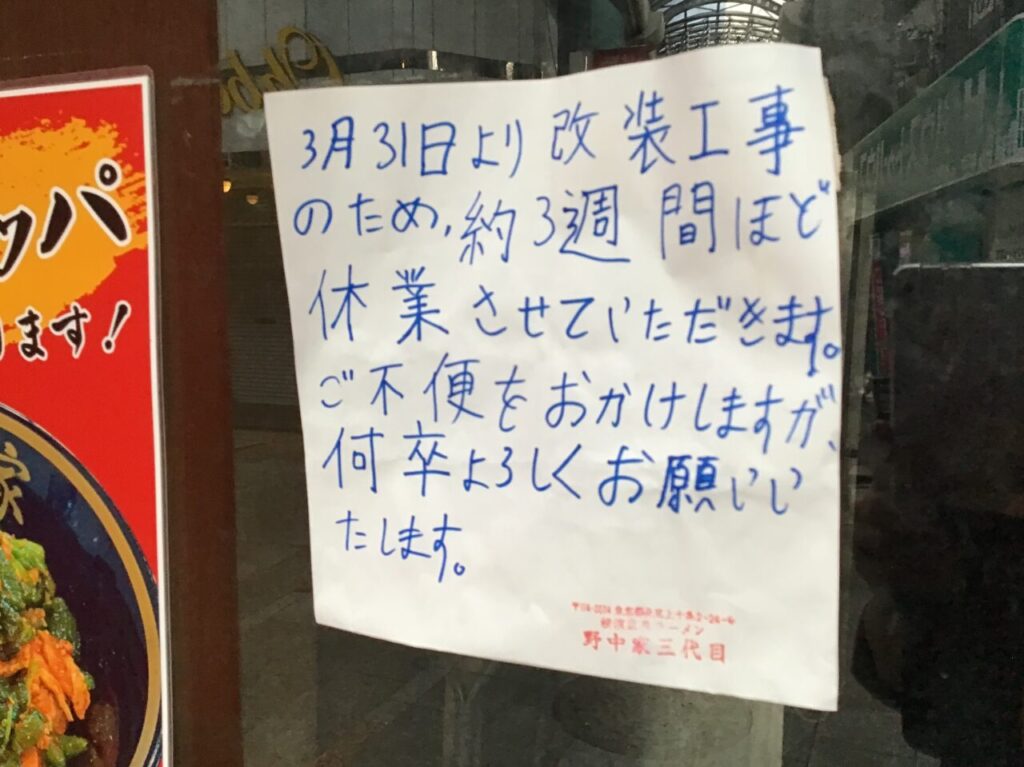 3月31日より改装工事
のため、約3週間ほど
休業させていただきます。
ご不便をおかけしますが、
何卒よろしくお願いい
たします。
野中家三代目
ッパ
ます!
家